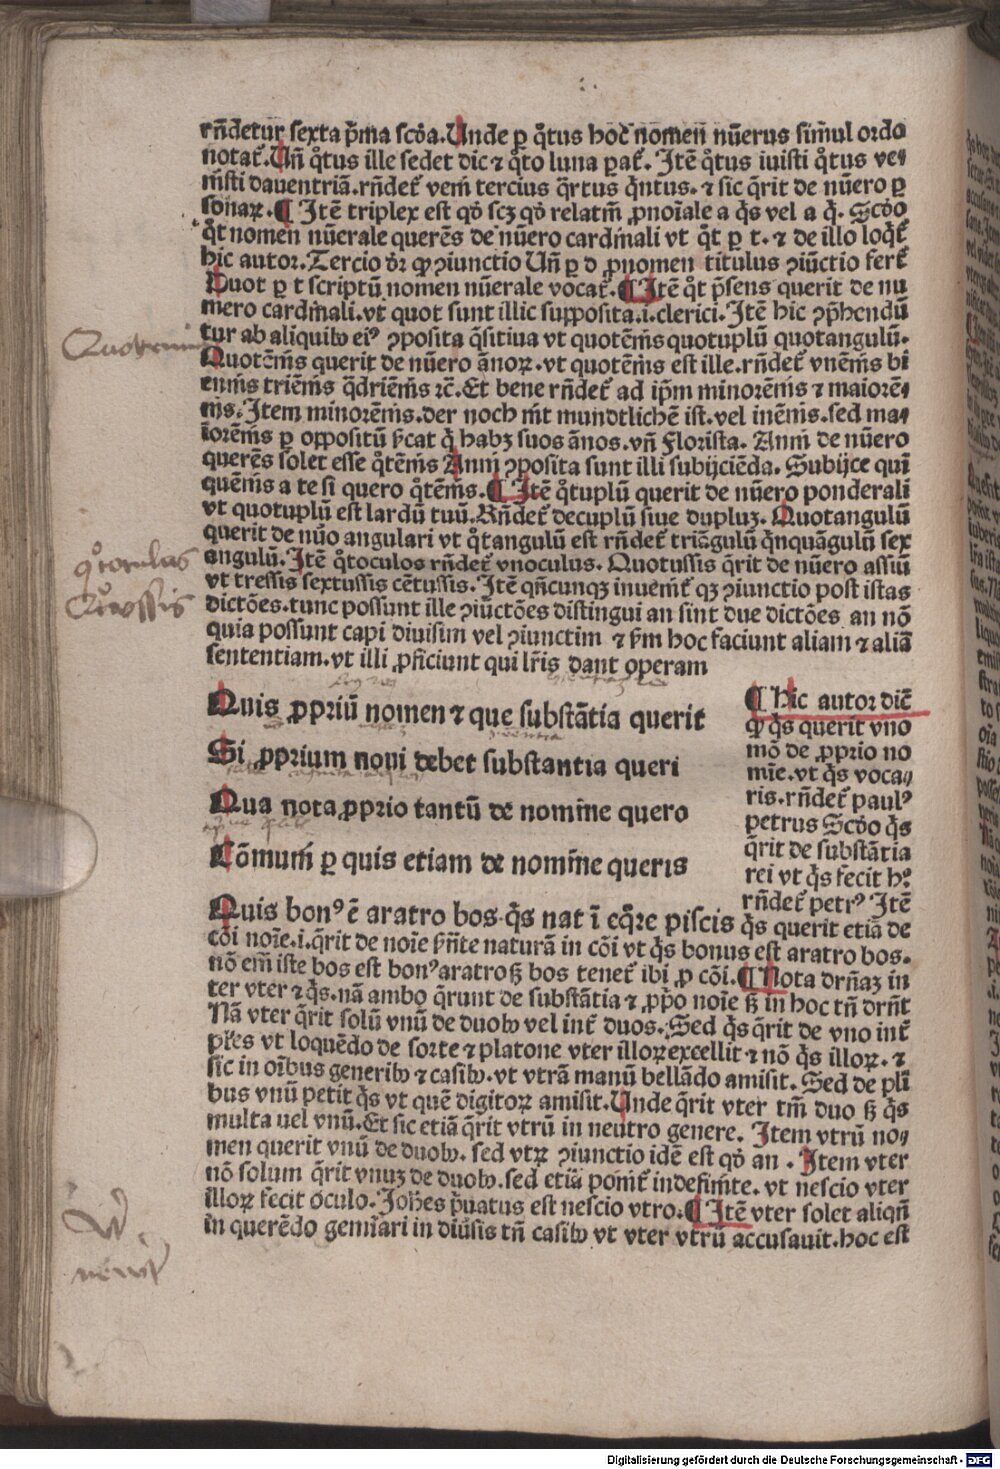 rn̄detur sexta p̄ma scd̄a. Unde ꝑ q̊tus hoc̄ nomen nūerus simul ordo
notat᷑. Un̄ q̊tus ille sedet dic ⁊ q̊to luna ꝑat᷑. Itē q̊tus iuisti q̊tus ve⸗
nīsti dauentriā. rn̄det᷑ veni tercius q̄rtus q̄ntus. ⁊ sic q̄rit de nūero ꝑ
sonaꝝ. ¶ Itē triplex est qd̄ scꝫ qd̄ relatiū ꝓnoīale a q̄s vel a q̄. Scd̄o
q̊t nomen nūerale querēs de nūero cardinali vt q̊t ꝑ t. ⁊ de illo loq̄t᷑
hic autor. Tercio dr̄ ꝙ ꝯiunctio Un̄ ꝑ d ꝓnomen titulus ꝯiūctio fert᷑
Quot ꝑ t scriptū nomen nūerale vocat᷑. ¶ Itē q̊t p̄sens querit de nu
mero cardinali. vt quot sunt illic supposita .i. clerici. Itē hic ꝯp̄hendū
tur ab aliquibꝰ eiꝰ ꝯposita q̄sitiua vt quotēnis quotuplū quotangulū.
Quotēnis querit de nūero ānoꝝ. vt quotēnis est ille. rn̄det᷑ vnēnis bi
ennis triēnis q̄driēnis ⁊c̄. Et bene rn̄det᷑ ad ip̄m minorēnis ⁊ maiorē⸗
nis. Item minorēnis. der noch nit mundtlichē ist. vel inēnis. sed ma⸗
iorēnis ꝑ oppositū s̄cat q̄ habꝫ suos ānos. vn̄ Florista. Anni de nūero
querēs solet esse q̊tēnis Anni ꝯposita sunt illi subijciēda. Subijce quī
quēnis a te si quero q̊tēnis. ¶ Itē q̊tuplū querit de nūero ponderali
vt quotuplū est lardū tuū. Rn̄det᷑ decuplū siue dupluꝫ. Quotangulū
querit de nūo angulari vt q̊tangulū est rn̄det᷑ triāgulū q̄nquāgulū sex
angulū. Itē q̊toculos rn̄det᷑ vnoculus. Quotussis q̄rit de nūero assiū
vt tressis sextussis cētussis. Itē qn̄cunqꝫ inuenit᷑ qꝫ ꝯiunctio post istas
dictōes. tunc possunt ille ꝯiūctōes distingui an sint due dictōes an nō
quia possunt capi diuisim vel ꝯiunctim ⁊ s̄m hoc faciunt aliam ⁊ aliā
sententiam. vt illi ꝓficiunt qui lr̄is dant operam
Quotennis
q̊toculus
Quotussis
Quis ꝓpriū nomen ⁊ que substātia querit
Si ꝓprium noui debet substantia queri
Qua nota ꝓprio tantū de nomine quero
Cōmuni ꝑ quis etiam de nomine queris
¶ Hic autor dic̄
ꝙ q̄s querit vno
mō de ꝓprio no
mīe. vt q̄s voca⸗
ris. rn̄det᷑ paulꝰ
petrus Scd̄o q̄s
q̄rit de substātia
rei vt q̄s fecit hꝰ
rn̄det᷑ petrꝰ Itē
Quis bonꝰ ē aratro bos q̄s nat ī eq̄re piscis q̄s querit etiā de
cōi noīe .i. q̄rit de noīe s̄n̄te naturā in cōi vt q̄s bonus est aratro bos.
nō eni iste bos est bonꝰ aratro sꝫ bos tenet᷑ ibi ꝓ cōi. ¶ Nota drn̄aꝫ in
ter vter ⁊ q̄s. nā ambo q̄runt de substātia ⁊ ꝓp̄o noīe sꝫ in hoc tn̄ drn̄t
Nā vter q̄rit solū vnū de duobꝰ vel int᷑ duos. Sed q̄s q̄rit de vno int᷑
pl̄es vt loquēdo de sorte ⁊ platone vter illoꝝ excellit ⁊ nō q̄s illoꝝ. ⁊
sic in oībus generibꝰ ⁊ casibꝰ. vt vtrā manū bellādo amisit. Sed de pli
bus vnū petit q̄s vt quē digitoꝝ amisit. Unde q̄rit vter tm̄ duo sꝫ q̄s
multa uel vnū. Et sic etiā q̄rit vtrū in neutro genere. Item vtrū no⸗
men querit vnū de duobꝰ. sed vtꝝ ꝯiunctio idē est qd̄ an. Item vter
nō solum q̄rit vnuꝫ de duobꝰ. sed etiā ponit᷑ indefinite. vt nescio vter
illoꝝ fecit oculo. Joh̄es p̄uatus est nescio vtro. ¶ Itē vter solet aliqn̄
in querēdo geminari in diūsis tn̄ casibꝰ vt vter vtrū accusauit. hoc est
Digitalisierung gefördert durch die Deutsche Forschungsgemeinschaft - DFG